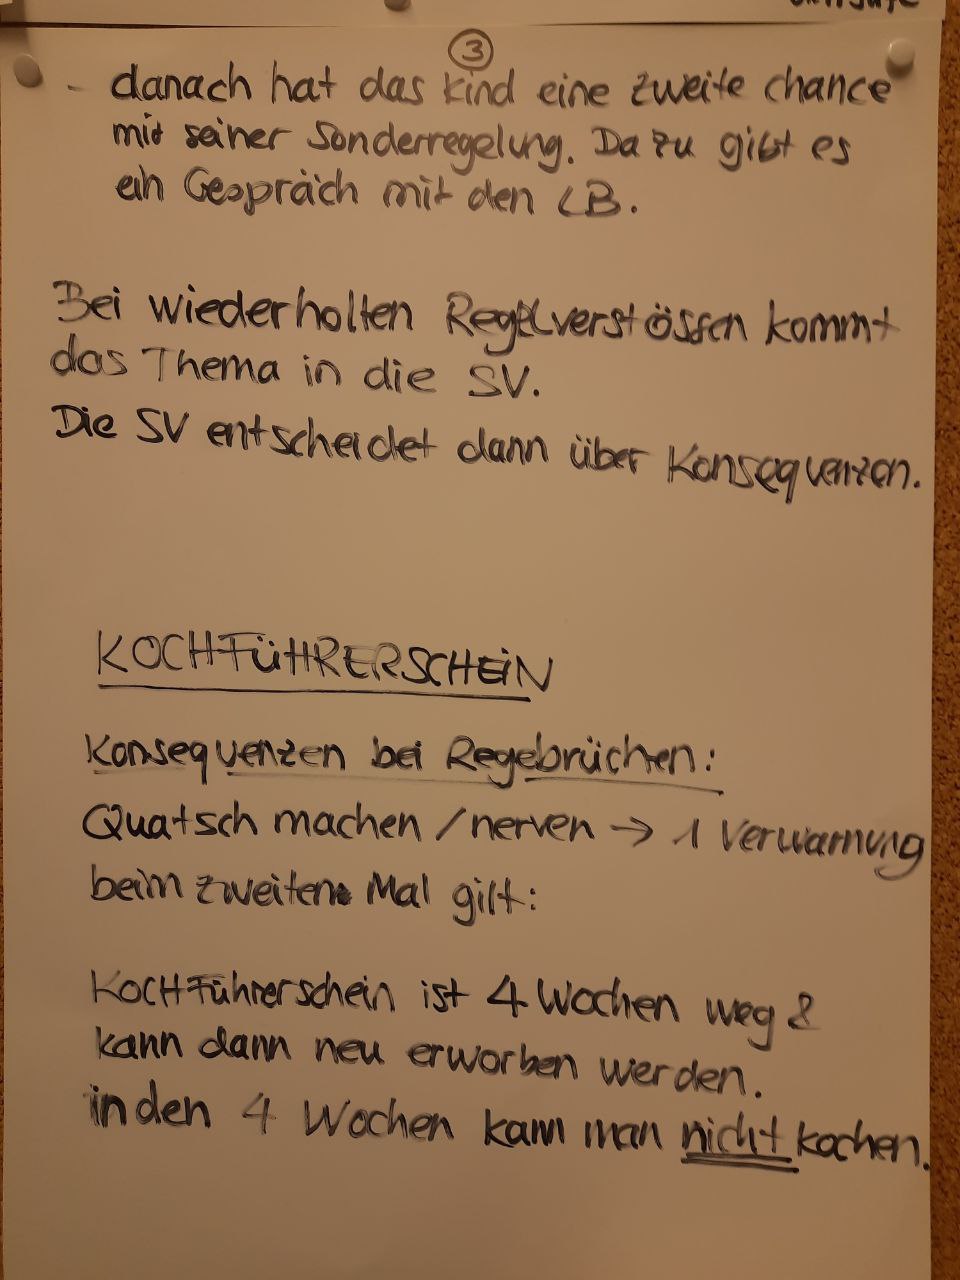 ③
- danach hat das Kind eine zweite chance
mit seiner Sonderregelung. Dazu gibt es
ein Gespräch mit den LB.
Bei wiederholten Regelverstössen kommt
das Thema in die SV.
Die SV entscheidet dann über Konsequenzen.
KOCHFÜHRERSCHEIN
Konsequenzen bei Regebrüchen:
Quatsch machen / nerven → 1 Verwarnung
beim zweiten Mal gilt:
KOCHFührerschein ist 4 Wochen weg &
kann dann neu erworben werden.
in den 4 Wochen kann man nicht kochen.